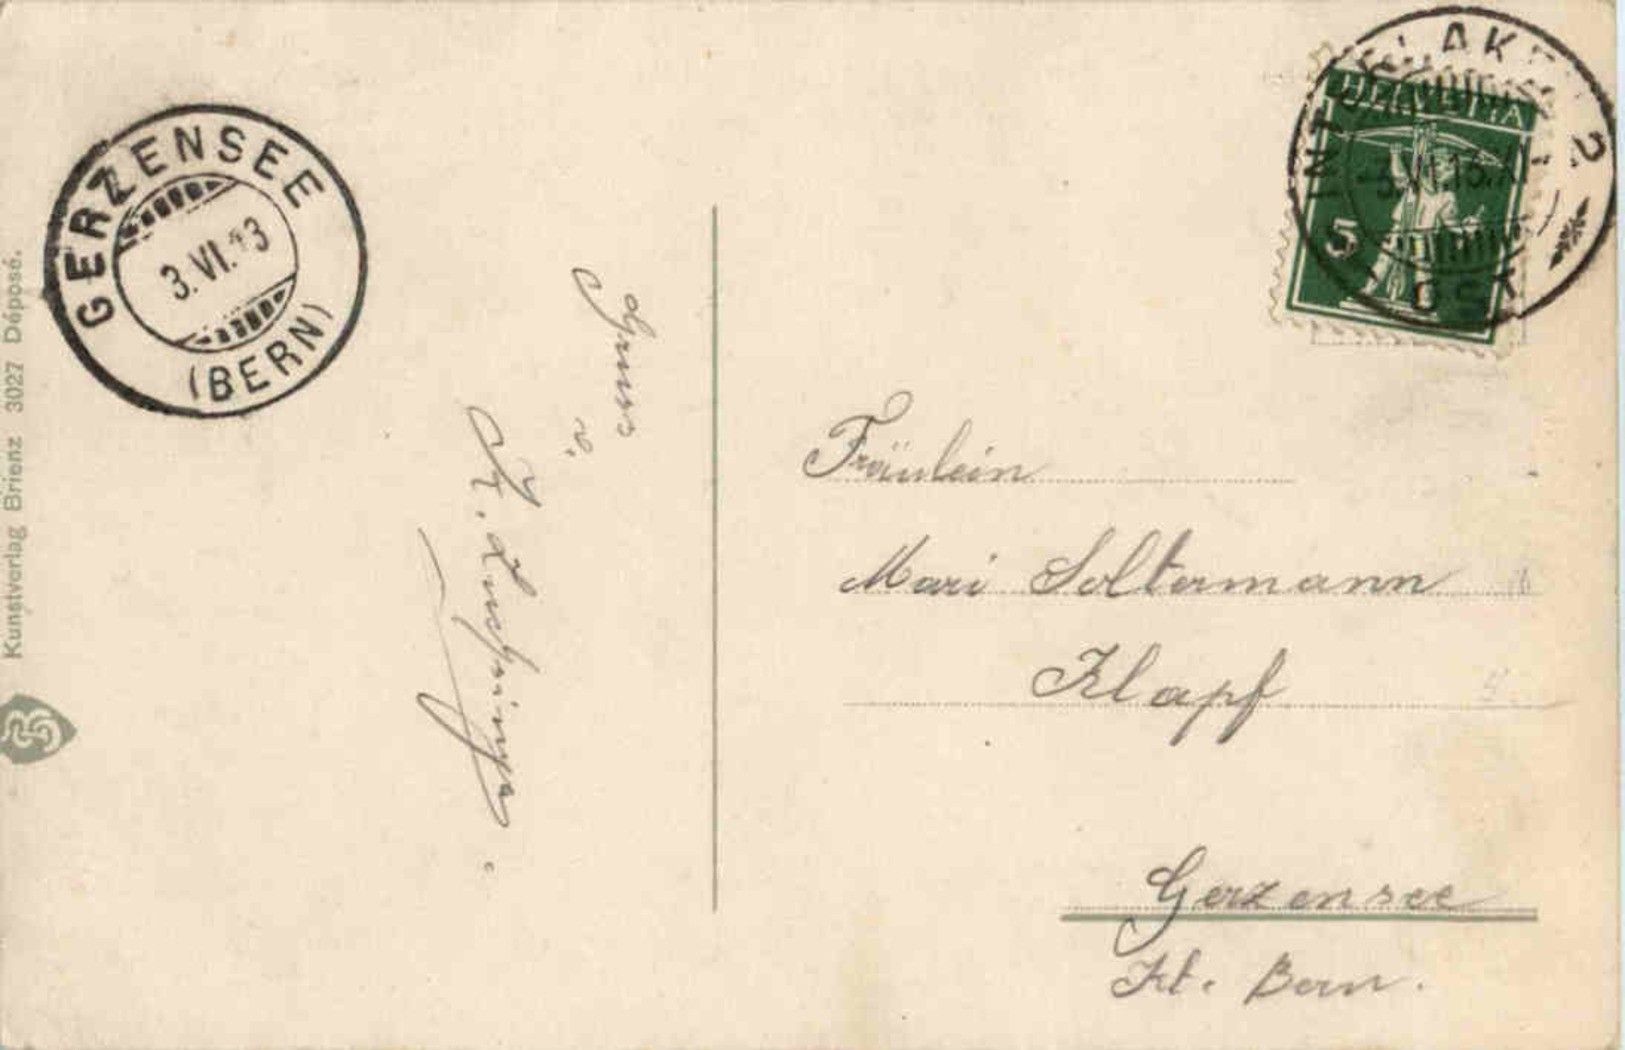 GERZENSEE
3.VI.13
(BERN)
INTERLAKEN 2.
OST
HELVETIA
5
Kunstverlag Brienz 3027 Déposé.
Gruss
v.
Fräulein
Mari Soltermann
Klapf
Gerzensee
Kt. Bern.